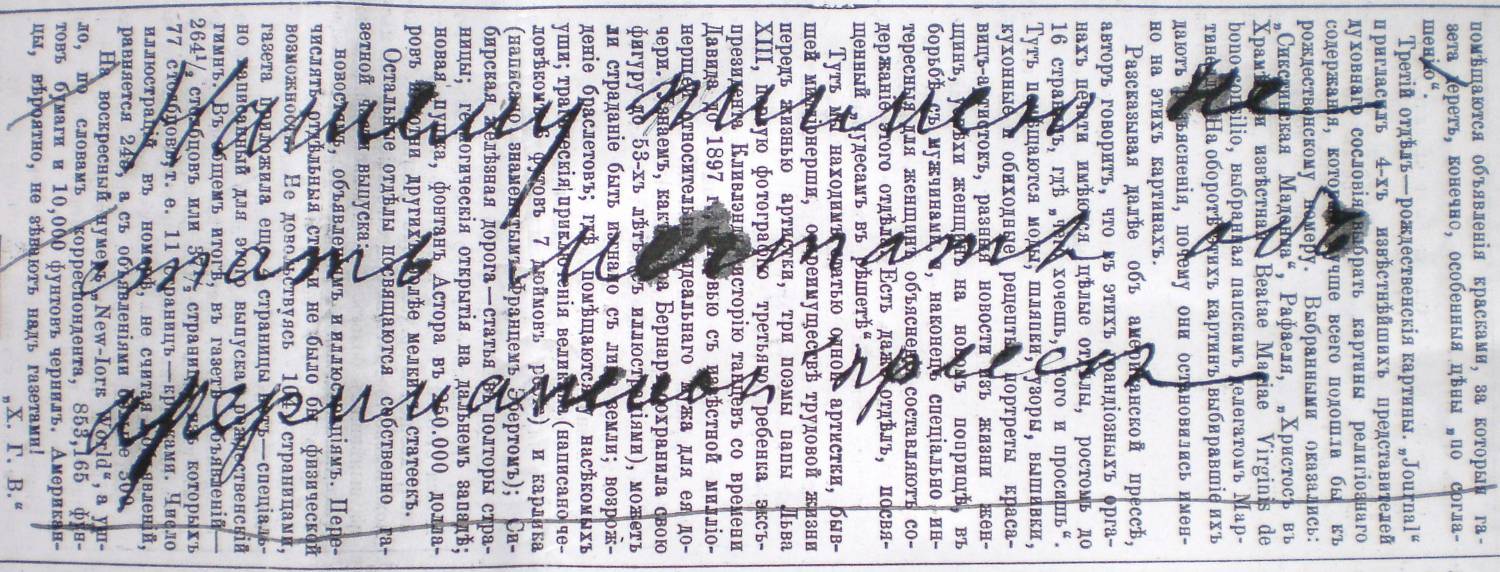 Нашему не
стать мечтать объ
прессѣ
помѣщаются объявленія красками, за которыя га-
зета беретъ, конечно, особенныя цѣны „по согла-
шенію“.
Третій отдѣлъ—рождественскія картины. „Journal“
пригласилъ 4-хъ извѣстнѣйшихъ представителей
духовнаго сословія выбрать картины религіознаго
содержанія, которыя лучше всего подошли бы къ
рождественскому номеру. Выбранными оказались:
„Сикстинская Мадонна“, Рафаеля, „Христосъ въ
Храмѣ“ и извѣстная Beatae Mariae Virginis de
bono consilio, выбранная папскимъ делегатомъ Мар-
тинелли. На оборотѣ этихъ картинъ выбиравшіе ихъ
даютъ объясненія, почему они остановились имен-
но на этихъ картинахъ.
Разсказывая далѣе объ американской прессѣ,
авторъ говоритъ, что въ этихъ грандіозныхъ орга-
нахъ печати имѣются цѣлые отдѣлы, ростомъ до
16 страницъ, гдѣ „чего хочешь, того и просишь“.
Тутъ помѣщаются моды, шляпки, узоры, вышивки,
кухонные и обиходные рецепты, портреты краса-
вицъ-артистокъ, разныя новости изъ жизни жен-
щинъ, успѣхи женщинъ на новомъ поприщѣ, въ
борьбѣ съ мужчинами и, наконецъ, спеціально ин-
тересныя для женщинъ объясненія составляютъ со-
держаніе этого отдѣла. Есть даже отдѣлъ, посвя-
щенный чудесамъ въ
Тутъ мы находимъ татуированную артистку, быв-
шей миллионерши, о преимуществѣ трудовой жизни
передъ жизнью артистки, три поэмы папы Льва
XIII, фотографію третьяго ребенка экс-
президента Кливленда, исторію танцевъ со времени
Давида до 1897 года, интервью съ извѣстной милліо-
нершей относительно идеальнаго мужа для ея до-
чери; узнаемъ, какъ Сара Бернаръ сохранила свою
фигуру до 53-хъ лѣтъ (съ иллюстраціями), можетъ
ли страданіе быть изгнано съ лица земли; возрож-
деніе браслетовъ; гдѣ помѣщаются у насѣкомыхъ
уши; трагическія приключенія великана (написано че-
ловѣкомъ 7 футовъ 7 дюймовъ ростомъ) и карлика
(написано знаменитымъ французомъ Эбертомъ); Си-
бирская желѣзная дорога—статья въ полторы стра-
ницы; геологическія открытія на дальнемъ западѣ;
новая пушка, фонтанъ Астора въ 550.000 долла-
ровъ и другихъ болѣе мелкихъ статеекъ.
Остальные отдѣлы посвящаются собственно га-
зетной части выпуска:
новостямъ, объявленіямъ и иллюстраціямъ. Пере-
числять отдѣльныя статьи не было бы физической
возможности. Не довольствуясь 10 страницами,
газета приложила еще 4 страницы нотъ—спеціаль-
но написанный для этого выпуска рождественскій
гимнъ. Въ общемъ итогѣ, въ газетѣ объявленій—
264½ столбцовъ или 37⅘ страницъ, которыхъ,
77 столбцовъ, т. е. 11 страницъ—красками. Число
иллюстрацій въ номерѣ, не считая объявленій,
равняется 246, а съ объявленіями болѣе 300.
На воскресный нумеръ „New-Iork World“, а уш-
ло, по словамъ корреспондента, 859,165 фун-
товъ бумаги и 10,000 фунтовъ чернилъ. Американ-
цы, вѣроятно, не зѣваютъ надъ газетами!
„Х. Г. В.“